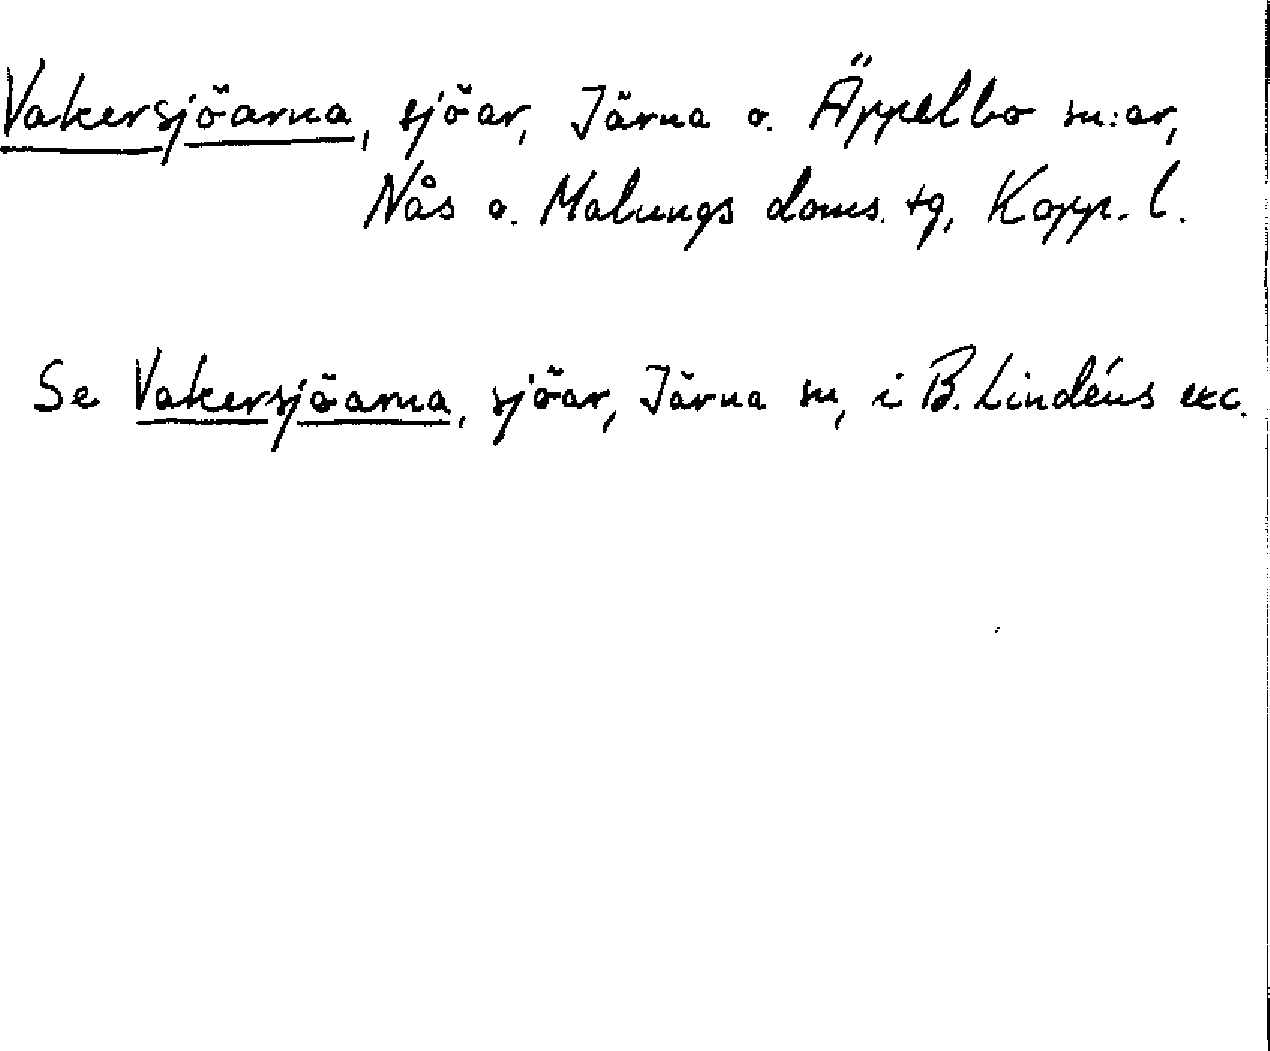 Vakersjöarna, sjöar, Järna o. Äppelbo sn:ar,
Nås o. Malungs doms. tg, Kopp. l.
Se Vakersjöarna, sjöar, Järna sn, i B. Lindéns exc.